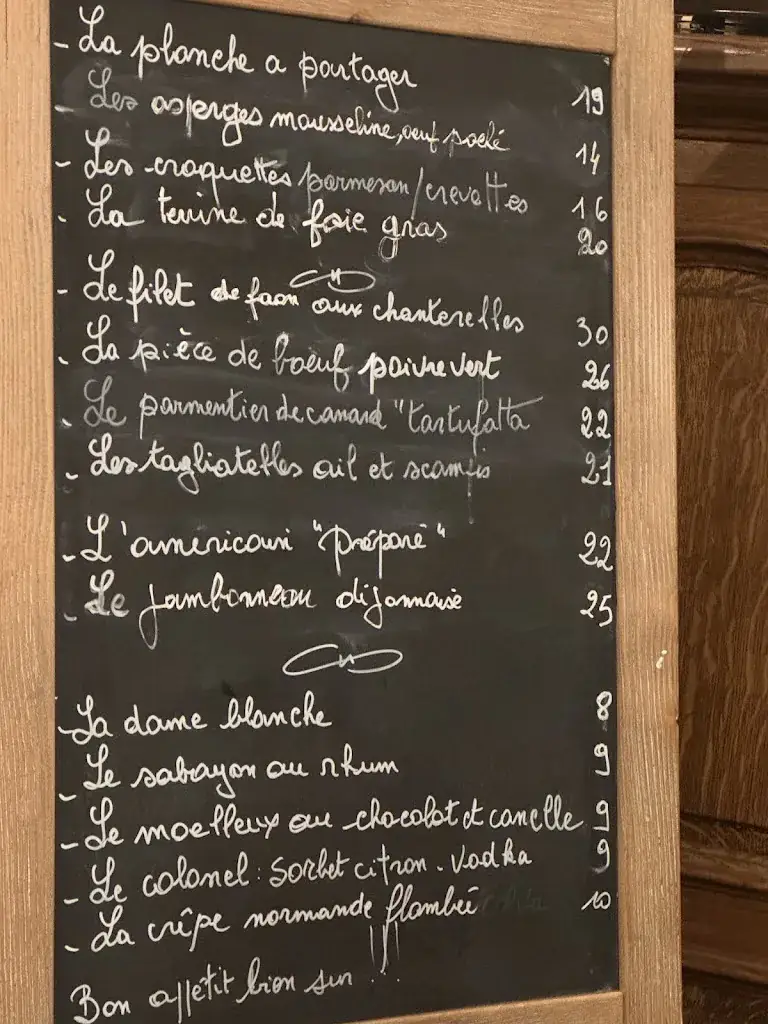 - La planche a partager 19
- Les asperges mousseline, oeuf poché 14
- Les croquettes parmesan/crevettes 16
- La terrine de foie gras 20
- Le filet de faon aux chanterelles 30
- La pièce de boeuf poivre vert 26
- Le parmentier de canard "tartufatta 22
- Les tagliatelles ail et scampis 21
- L'américain "préparé" 22
- Le jambonneau dijonnaise 25
- La dame blanche 8
- Le sabayon au rhum 9
- Le moelleux au chocolat et canelle 9
- Le colonel : sorbet citron. vodka 9
- La crêpe normande flambée 10
Bon appétit bien sur !!!